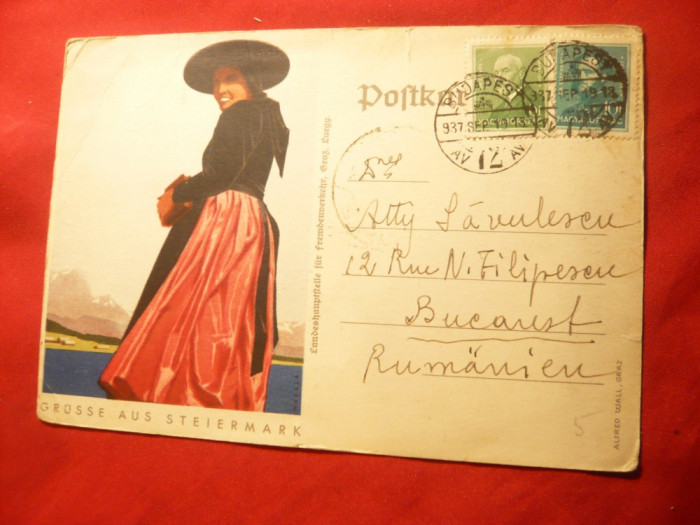 Postkarte
BUDAPEST
937.SEP.19
72
AV AV
BUDAPEST
937.SEP.19-18
72
AV
MAGYAR
10f
Dnei
Atty Săvulescu
12 Rue N. Filipescu
Bucarest
Rumänien
Landeshauptstelle für Fremdenverkehr, Graz, Luegg.
GRÜSSE AUS STEIERMARK
ALFRED WALL, GRAZ
5